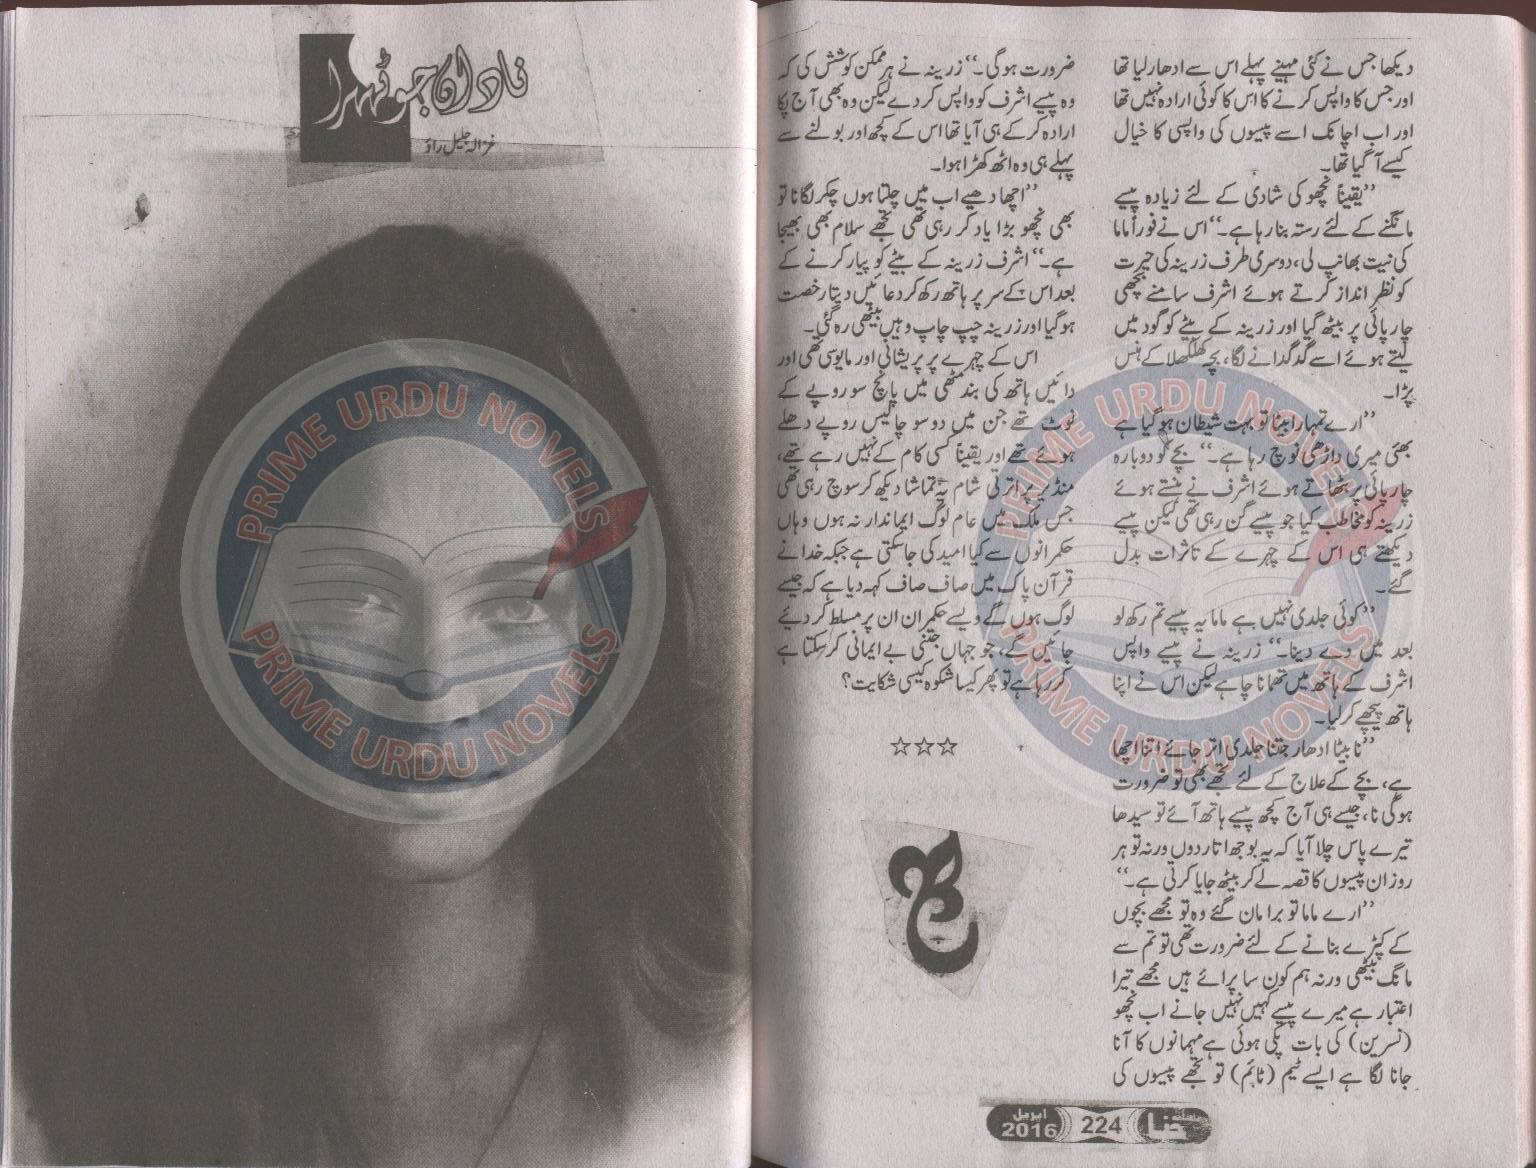 دیکھا جس نے کئی مہینے پہلے اس سے ادھار لیا تھا
اور جس کا واپس کرنے کا اس کا کوئی ارادہ نہیں تھا
اور اب اچانک اسے پیسوں کی واپسی کا خیال
کیسے آ گیا تھا۔
’’یقیناً نچھو کی شادی کے لئے زیادہ پیسے
مانگنے کے لئے رستہ بنا رہا ہے۔‘‘ اس نے فوراً ماما
کی نیت بھانپ لی، دوسری طرف زرینہ کی حیرت
کو نظر انداز کرتے ہوئے اشرف سامنے بچھی
چارپائی پر بیٹھ گیا اور زرینہ کے بیٹے کو گود میں
لیتے ہوئے اسے گدگدانے لگا، بچہ کھلکھلا کے ہنس
پڑا۔
’’ارے تمہارا بیٹا تو بہت شیطان ہو گیا ہے
بھئی میری داڑھی نوچ رہا ہے۔‘‘ بچے کو دوبارہ
چارپائی پر بٹھاتے ہوئے اشرف نے ہنستے ہوئے
زرینہ کو مخاطب کیا جو پیسے گن رہی تھی لیکن پیسے
دیکھتے ہی اس کے چہرے کے تاثرات بدل
گئے۔
’’کوئی جلدی نہیں ہے ماما یہ پیسے تم رکھ لو
بعد میں دے دینا۔‘‘ زرینہ نے پیسے واپس
اشرف کے ہاتھ میں تھمانا چاہے لیکن اس نے اپنا
ہاتھ پیچھے کر لیا۔
’’نا بیٹا ادھار جتنا جلدی اتر جائے اتنا اچھا
ہے، بچے کے علاج کے لئے تجھے بھی تو ضرورت
ہو گی نا، جیسے ہی آج کچھ پیسے ہاتھ آئے تو سیدھا
تیرے پاس چلا آیا کہ یہ بوجھ اتار دوں ورنہ تو ہر
روز ان پیسوں کا قصہ لے کر بیٹھ جایا کرتی ہے۔‘‘
’’ارے ماما تو برا مان گئے وہ تو مجھے بچوں
کے کپڑے بنانے کے لئے ضرورت تھی تو تم سے
مانگ بیٹھی ورنہ ہم کون سا پرائے ہیں مجھے تیرا
اعتبار ہے میرے پیسے کہیں نہیں جانے اب نچھو
(نسرین) کی بات پکی ہوئی ہے مہمانوں کا آنا
جانا لگا ہے ایسے ٹیم (ٹائم) تو تجھے پیسوں کی
ضرورت ہو گی۔‘‘ زرینہ نے ہر ممکن کوشش کی کہ
وہ پیسے اشرف کو واپس کر دے لیکن وہ بھی آج پکا
ارادہ کر کے ہی آیا تھا اس کے کچھ اور بولنے سے
پہلے ہی وہ اٹھ کھڑا ہوا۔
’’اچھا دھیے اب میں چلتا ہوں چکر لگانا تو
بھی نچھو بڑا یاد کر رہی تھی تجھے سلام بھی بھیجا
ہے۔‘‘ اشرف زرینہ کے بیٹے کو پیار کرنے کے
بعد اس کے سر پر ہاتھ رکھ کر دعائیں دیتا رخصت
ہو گیا اور زرینہ چپ چاپ وہیں بیٹھی رہ گئی۔
اس کے چہرے پر پریشانی اور مایوسی تھی اور
دائیں ہاتھ کی بند مٹھی میں پانچ سو روپے کے
نوٹ تھے جن میں دو سو چالیس روپے دھلے
ہوئے تھے اور یقیناً کسی کام کے نہیں رہے تھے،
منڈیر پر اترتی شام یہ تماشا دیکھ کر سوچ رہی تھی
جس ملک میں عام لوگ ایماندار نہ ہوں وہاں
حکمرانوں سے کیا امید کی جا سکتی ہے جبکہ خدا نے
قرآن پاک میں صاف صاف کہہ دیا ہے کہ جیسے
لوگ ہوں گے ویسے حکمران ان پر مسلط کر دیے
جائیں گے، جو جہاں جتنی بے ایمانی کر سکتا ہے
کر رہا ہے تو پھر کیسا شکوہ کیسی شکایت؟
☆☆☆
حنا 224 اپریل 2016
نادان جو ٹھہرا
غزالہ جلیل راؤ
PRIME URDU NOVELS
PRIME URDU NOVELS
PRIME URDU NOVELS
PRIME URDU NOVELS